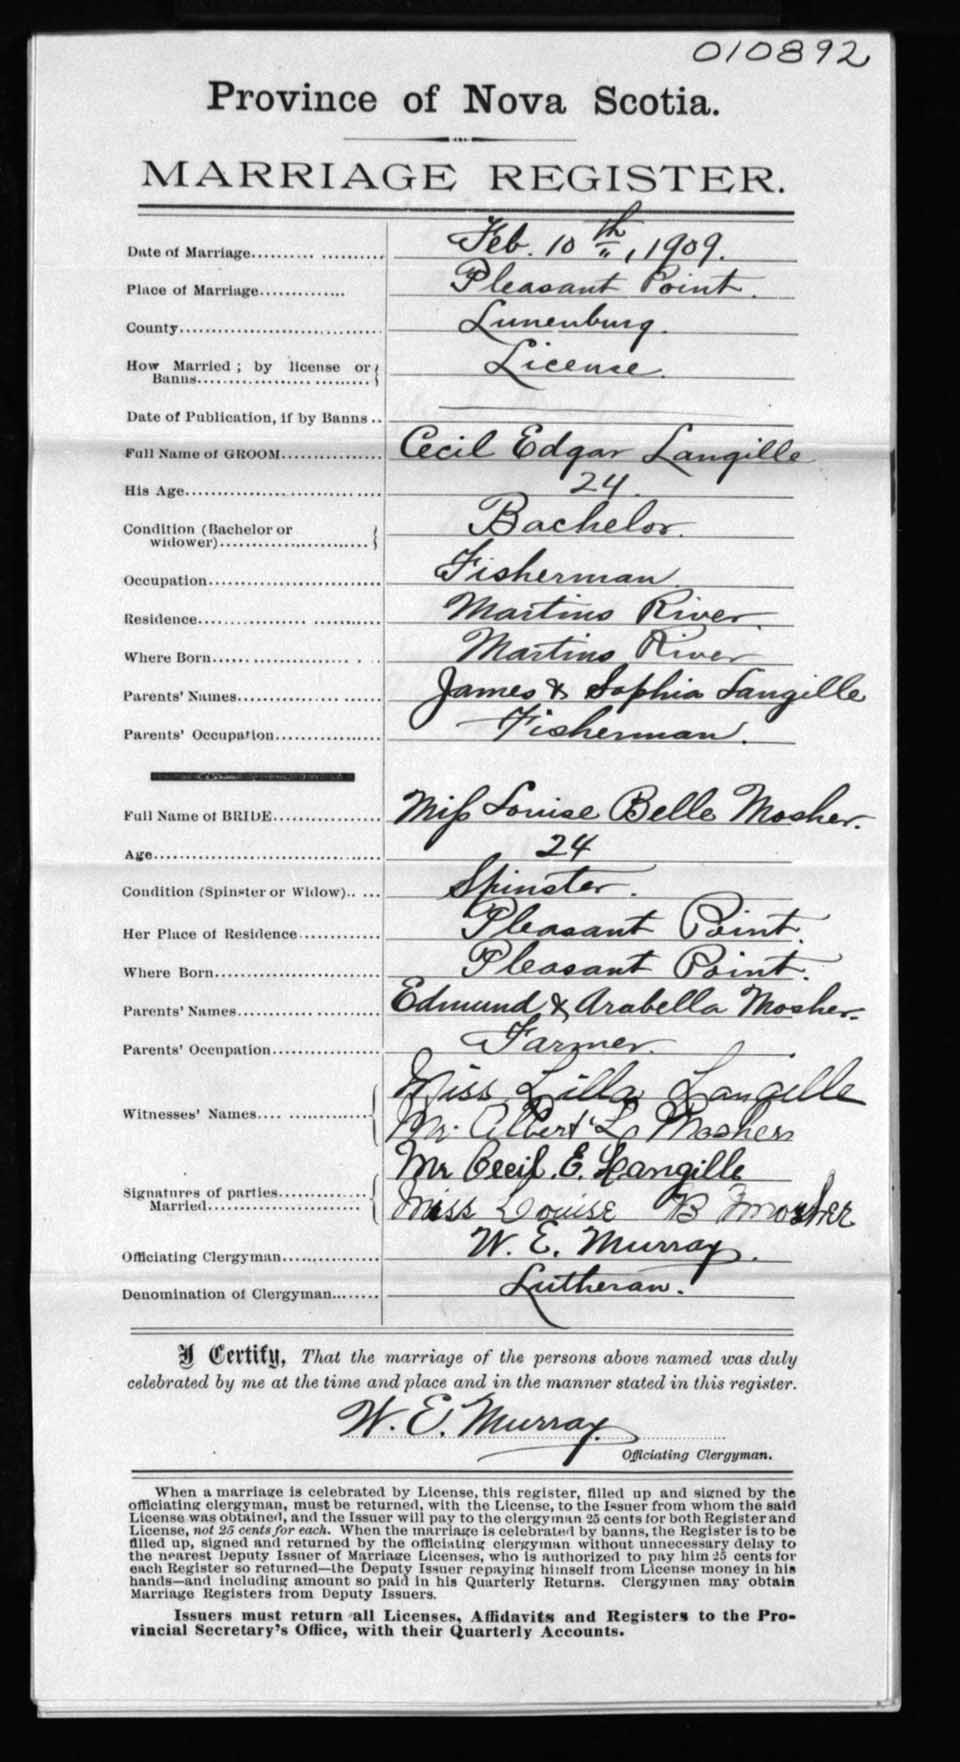 010892
Province of Nova Scotia.
MARRIAGE REGISTER.
Date of Marriage.................... Feb. 10th, 1909.
Place of Marriage............. Pleasant Point.
County.............................. Lunenburg.
How Married ; by license or License.
Banns.............................
Date of Publication, if by Banns ..
Full Name of GROOM............... Cecil Edgar Langille
His Age............................. 24.
Condition (Bachelor or Bachelor.
widower).......................
Occupation......................... Fisherman.
Residence........................... Martins River.
Where Born........................ Martins River
Parents' Names..................... James & Sophia Langille
Parents' Occupation................ Fisherman.
Full Name of BRIDE................ Miss Louise Belle Mosher.
Age.................................. 24
Condition (Spinster or Widow)..... Spinster.
Her Place of Residence............ Pleasant Point.
Where Born......................... Pleasant Point.
Parents' Names..................... Edmund & Arabella Mosher.
Parents' Occupation................ Farmer.
Miss Lilla Langille
Witnesses' Names.................. Mr. Albert L. Mosher
Mr Cecil. E. Langille
Signatures of parties............... Miss Louise B Mosher
Married.........................
Officiating Clergyman.............. W. E. Murray.
Denomination of Clergyman........ Lutheran.
I Certify, That the marriage of the persons above named was duly
celebrated by me at the time and place and in the manner stated in this register.
W. E. Murray.
Officiating Clergyman.
When a marriage is celebrated by License, this register, filled up and signed by the
officiating clergyman, must be returned, with the License, to the Issuer from whom the said
License was obtained, and the Issuer will pay to the clergyman 25 cents for both Register and
License, not 25 cents for each. When the marriage is celebrated by banns, the Register is to be
filled up, signed and returned by the officiating clergyman without unnecessary delay to
the nearest Deputy Issuer of Marriage Licenses, who is authorized to pay him 25 cents for
each Register so returned—the Deputy Issuer repaying himself from License money in his
hands—and including amount so paid in his Quarterly Returns. Clergymen may obtain
Marriage Registers from Deputy Issuers.
Issuers must return all Licenses, Affidavits and Registers to the Pro-
vincial Secretary's Office, with their Quarterly Accounts.